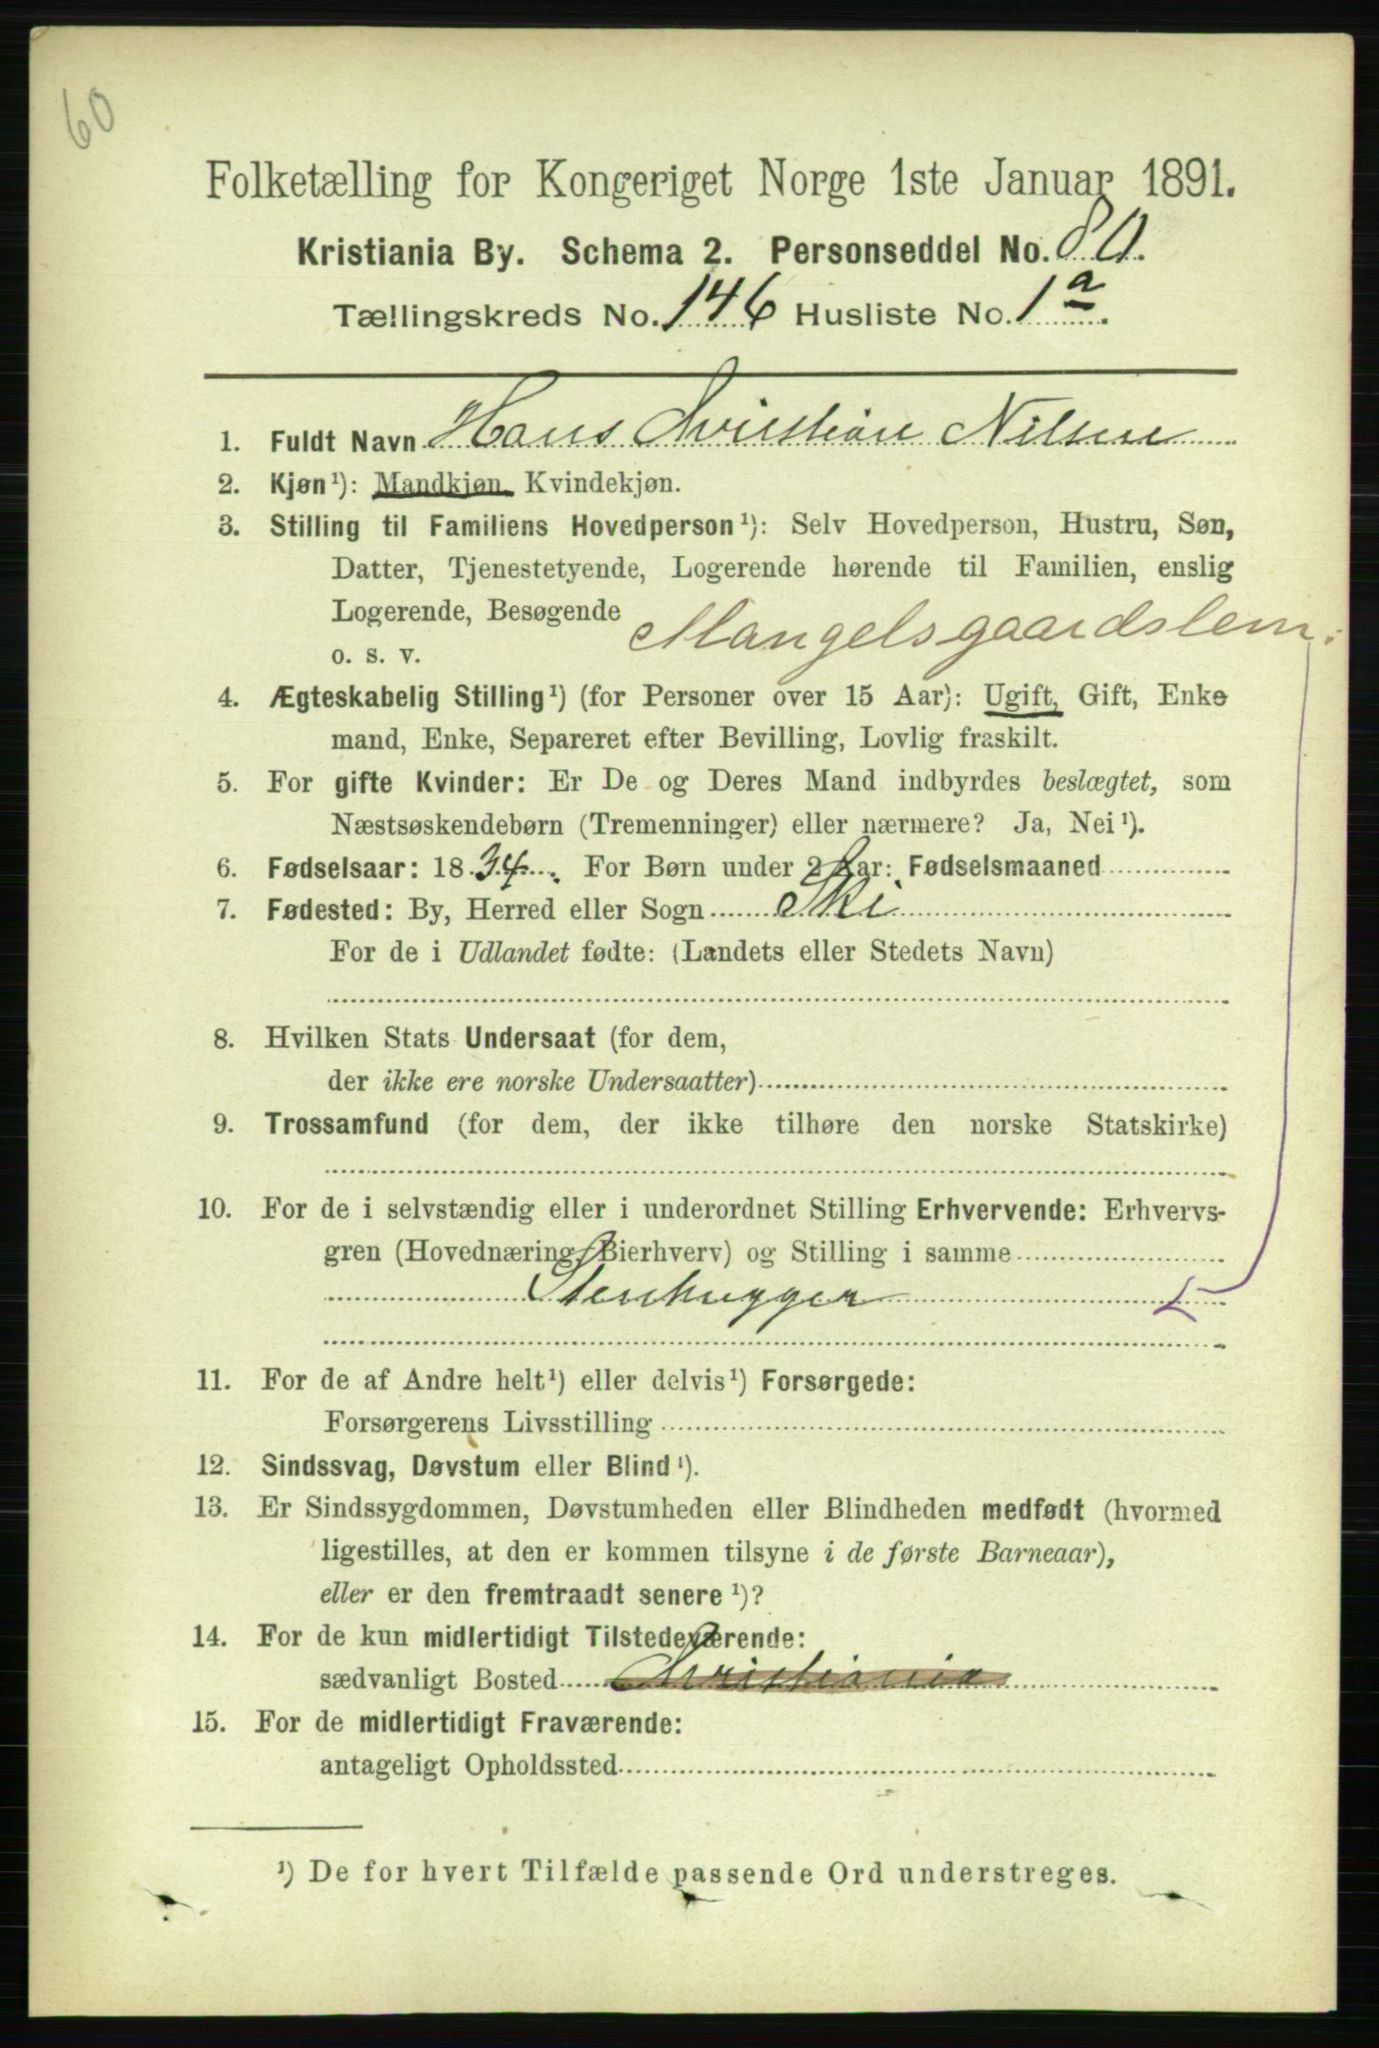 60
Folketælling for Kongeriget Norge 1ste Januar 1891.
Kristiania By. Schema 2. Personseddel No. 80.
Tællingskreds No. 146 Husliste No. 1a.
1. Fuldt Navn Hans Christian Nilsen
2. Kjøn¹): Mandkjøn, Kvindekjøn.
3. Stilling til Familiens Hovedperson¹): Selv Hovedperson, Hustru, Søn,
Datter, Tjenestetyende, Logerende hørende til Familien, enslig
Logerende, Besøgende
o. s. v. Mangelsgaardslem.
4. Ægteskabelig Stilling¹) (for Personer over 15 Aar): Ugift, Gift, Enke
mand, Enke, Separeret efter Bevilling, Lovlig fraskilt.
5. For gifte Kvinder: Er De og Deres Mand indbyrdes beslægtet, som
Næstsøskendebørn (Tremenninger) eller nærmere? Ja, Nei¹).
6. Fødselsaar: 1834. For Børn under 2 Aar: Fødselsmaaned
7. Fødested: By, Herred eller Sogn Ski
For de i Udlandet fødte: (Landets eller Stedets Navn)
8. Hvilken Stats Undersaat (for dem,
der ikke ere norske Undersaatter)
9. Trossamfund (for dem, der ikke tilhøre den norske Statskirke)
10. For de i selvstændig eller i underordnet Stilling Erhvervende: Erhvervs-
gren (Hovednæring, Bierhverv) og Stilling i samme
Stenhugger
11. For de af Andre helt¹) eller delvis¹) Forsørgede:
Forsørgerens Livsstilling
12. Sindssvag, Døvstum eller Blind¹).
13. Er Sindssygdommen, Døvstumheden eller Blindheden medfødt (hvormed
ligestilles, at den er kommen tilsyne i de første Barneaar),
eller er den fremtraadt senere¹)?
14. For de kun midlertidigt Tilstedeværende:
sædvanligt Bosted Christiania
15. For de midlertidigt Fraværende:
antageligt Opholdssted
¹) De for hvert Tilfælde passende Ord understreges.